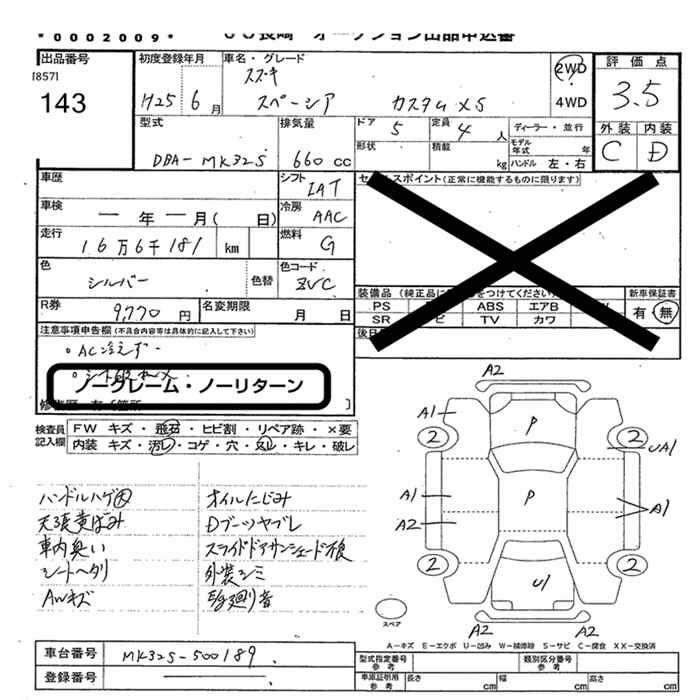 *0002009*
JU長崎 オークション出品申込書
出品番号
[857]
143
初度登録年月
H25 6月
車名・グレード
スズキ
スペーシア カスタム XS
2WD
4WD
評価点
3.5
外装 内装
C D
型式
DBA-MK32S
排気量
660 cc
ドア 5
定員 4 人
形状
積載 kg
ディーラー・並行
モデル年式 年
ハンドル 左・右
車歴
車検
ー年ー月( 日)
走行
16万6千181 km
色
シルバー
色替
シフト
IAT
冷房
AAC
燃料
G
色コード
ZVC
R券
9,770 円
名変期限
月 日
セールスポイント(正常に機能するものに限ります)
装備品
PS ABS エアB
SR TV カワ
新車保証書
有・無
注意事項申告欄(不具合内容等は具体的に記入して下さい)
。AC冷えず
ノークレーム・ノーリターン
検査員記入欄
FW キズ・飛石・ヒビ割・リペア跡・×要
内装 キズ・汚レ・コゲ・穴・スレ・キレ・破レ
ハンドルハゲ大
天張黄ばみ
車内臭い
シートヘタリ
AWキズ
オイルにじみ
Dブーツヤブレ
スライドドアサンシェード不良
外装シミ
E/g廻り音
A2
A1
P
2
2
UA1
A1
P
A1
A2
2
2
U1
A2
A2
スペア
A－キズ E－エクボ U－凹み W－補修跡 S－サビ C－腐食 XX－交換済
車台番号
MK32S-500189
登録番号
型式指定番号 参考
類別区分番号 参考
車庫証明用 参考
長さ cm
幅 cm
高さ cm